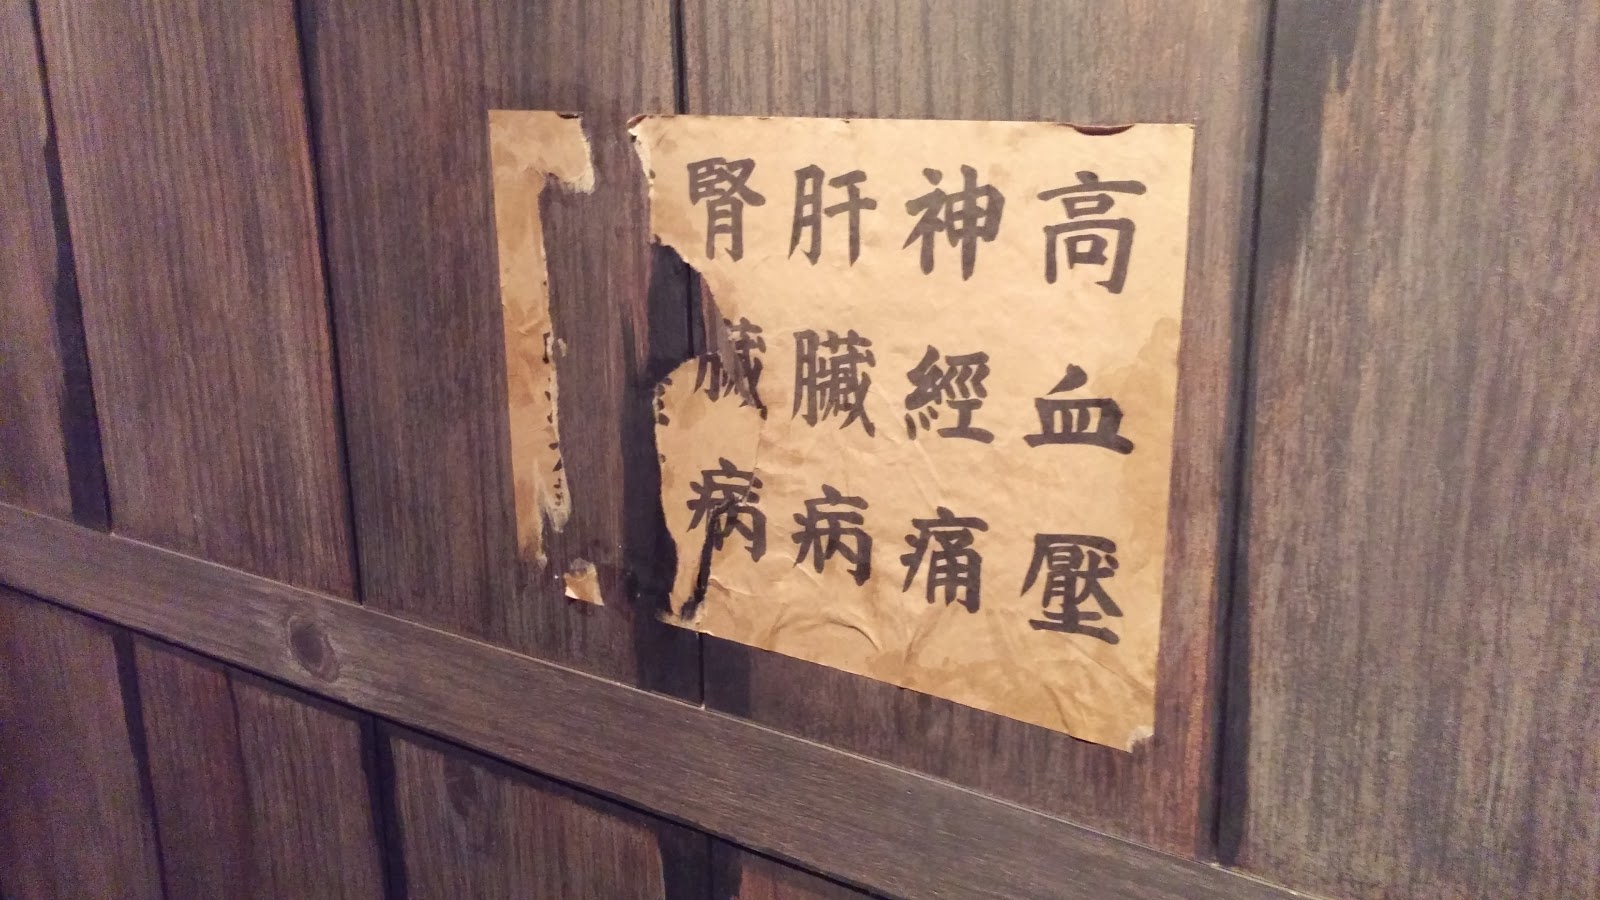 高血壓
神經痛
肝臟病
腎臟病